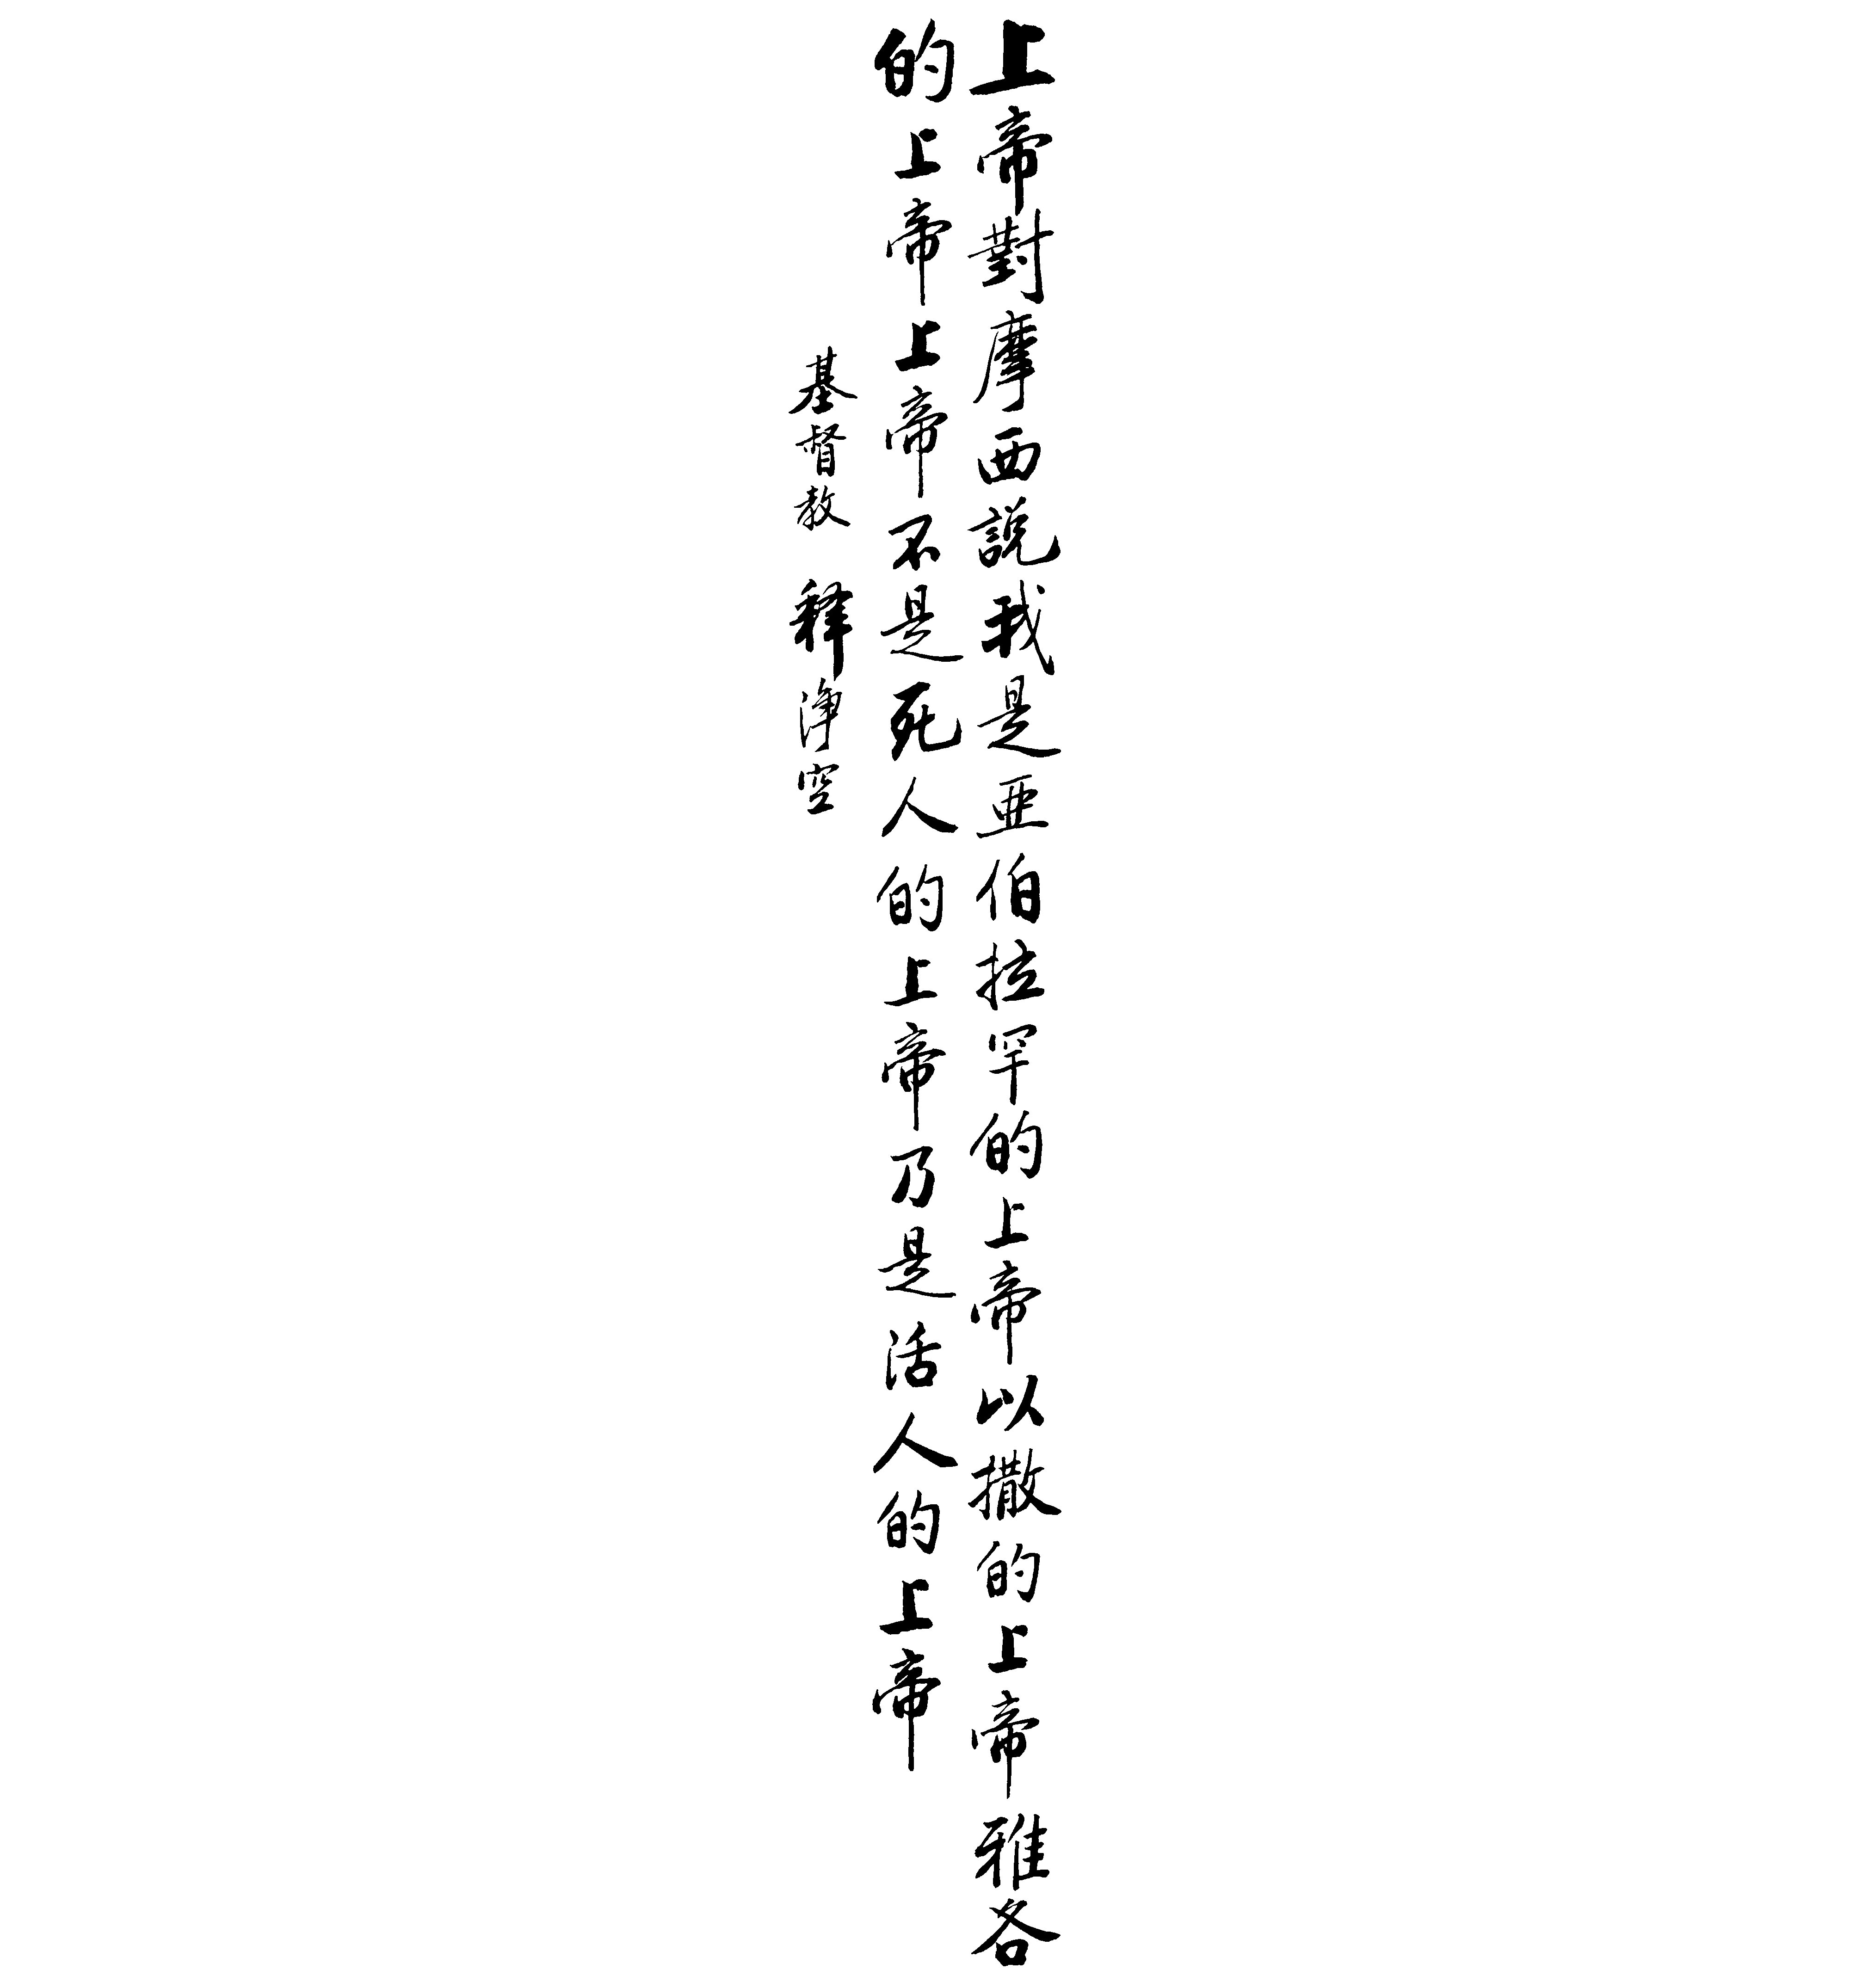 上帝對摩西説我是亜伯拉罕的上帝以撒的上帝雅各
的上帝上帝不是死人的上帝乃是活人的上帝
基督教 釋淨空